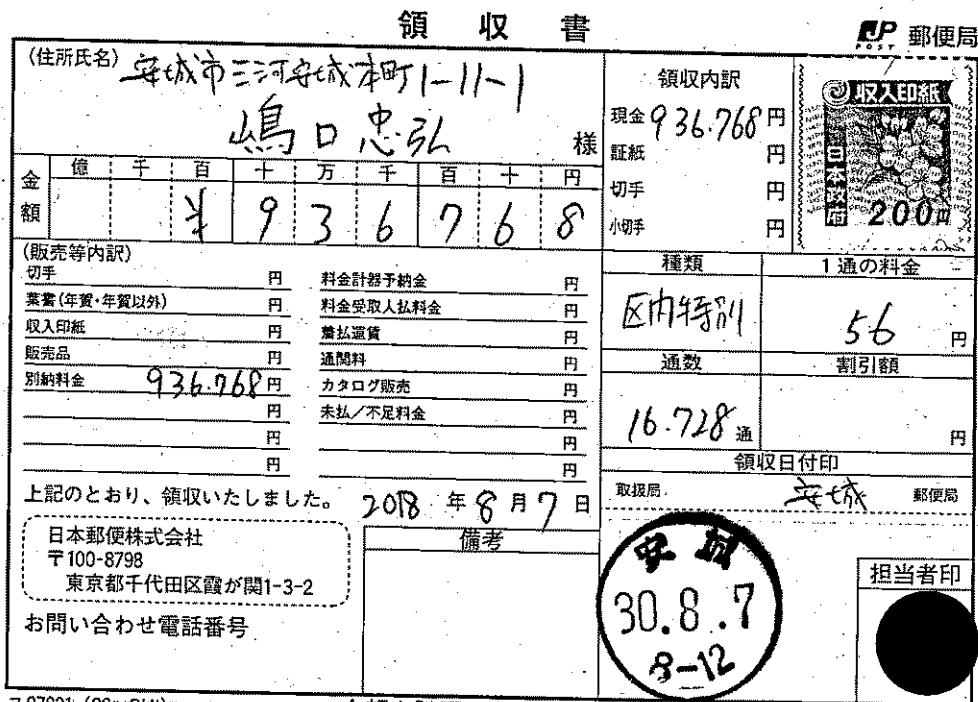 領収書
JP POST 郵便局
(住所氏名) 安城市三河安城本町1-11-1
嶋口忠弘 様
金額 億 千 百 十 万 千 百 十 円
¥ 9 3 6 7 6 8
領収内訳
現金 936.768 円
証紙 円
切手 円
小切手 円
収入印紙
日本政府
200円
(販売等内訳)
切手 円
葉書(年賀・年賀以外) 円
収入印紙 円
販売品 円
別納料金 936.768 円
円
円
円
料金計器予納金 円
料金受取人払料金 円
着払運賃 円
通関料 円
カタログ販売 円
未払/不足料金 円
円
円
種類 1通の料金
区内特別 56 円
通数 割引額
16.728 通 円
領収日付印
取扱局 安城 郵便局
上記のとおり、領収いたしました。 2018 年 8 月 7 日
日本郵便株式会社
〒100-8798
東京都千代田区霞が関1-3-2
お問い合わせ電話番号
備考
安城
30.8.7
8-12
担当者印